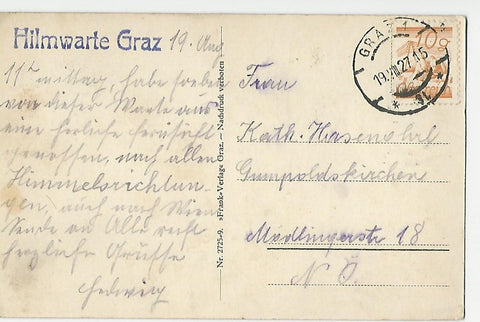 Hilmwarte Graz 19. Aug
11² mittag, habe soeben
von dieser Warte aus
eine herliche Fernsicht
genossen, nach allen
Himmelsrichtun-
gen, auch nach Wien
Sende an Alle recht
herzliche Grüsse
Hedwig
Nr. 2725-9. »Frank«-Verlag Graz. — Nachdruck verboten
GRAZ 1
19.VIII.27.15
10g
Frau
Kath. Hasenöhrl
Gumpoldskirchen
Mödlingerstr 18
N. Ö.